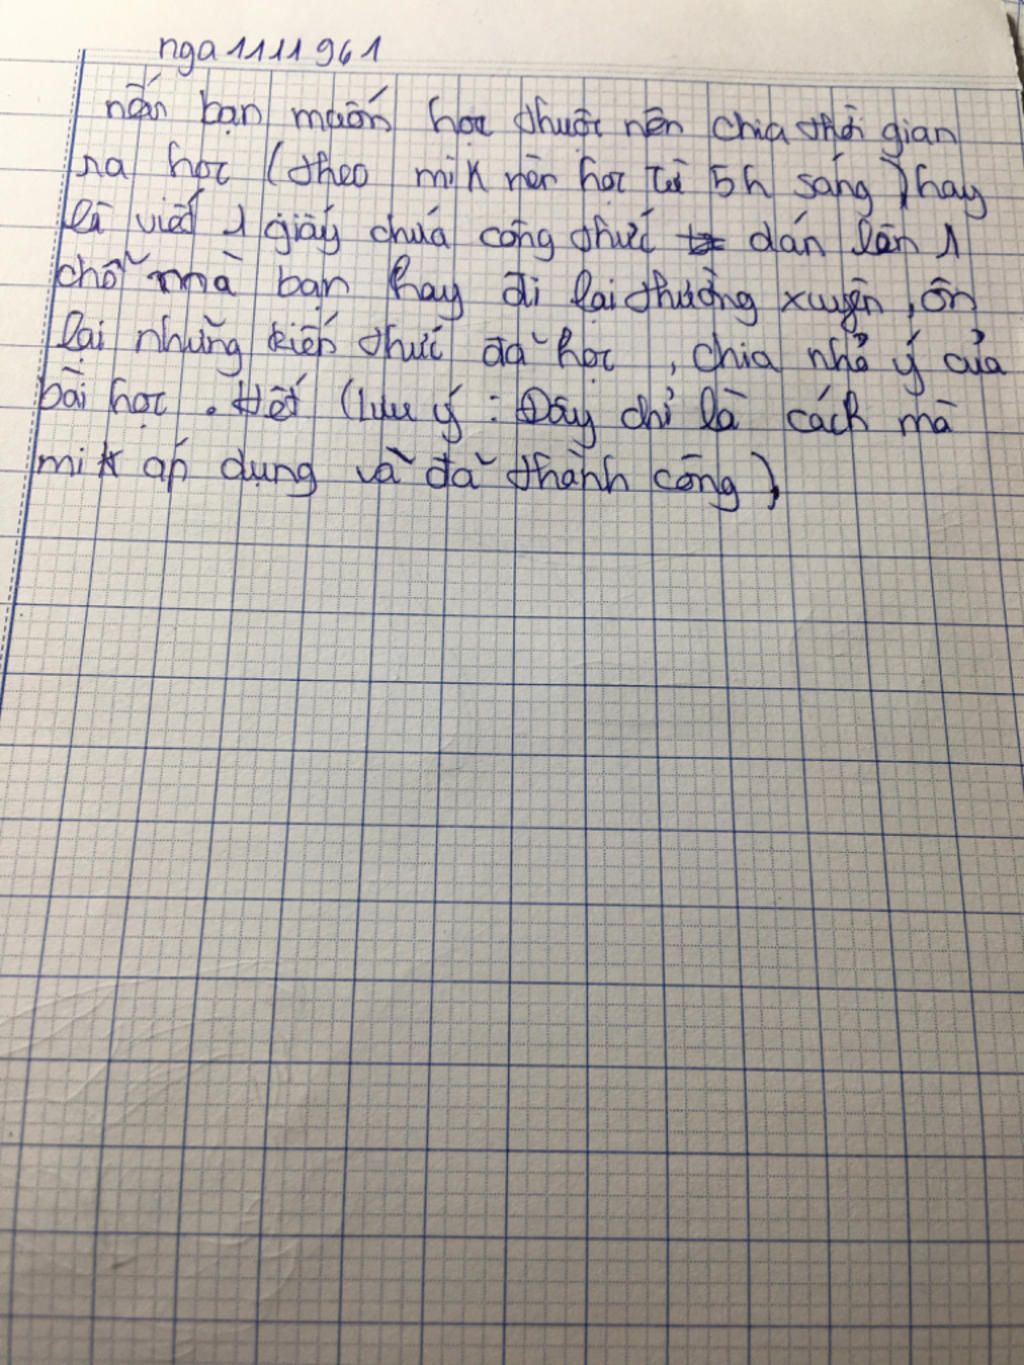 nga1111961
nếu bạn muốn học thuộc nên chia thời gian
ra học (theo mik nên học từ 5h sáng) hay
là viết 1 giấy chứa công thức dán lên 1
chỗ mà bạn hay đi lại thường xuyên, ôn
lại những kiến thức đã học, chia nhỏ ý của
bài học. Hết (lưu ý: Đây chỉ là cách mà
mik áp dụng và đã thành công)